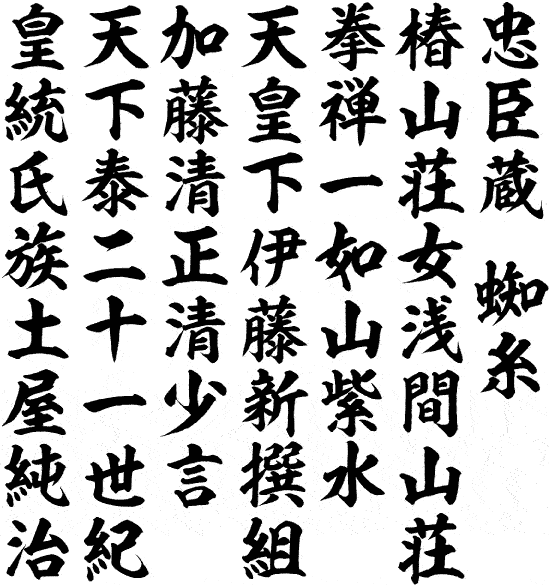 忠臣蔵 蜘糸
椿山荘女浅間山荘
拳禅一如山紫水
天皇下伊藤新撰組
加藤清正清少言
天下泰二十一世紀
皇統氏族土屋純治